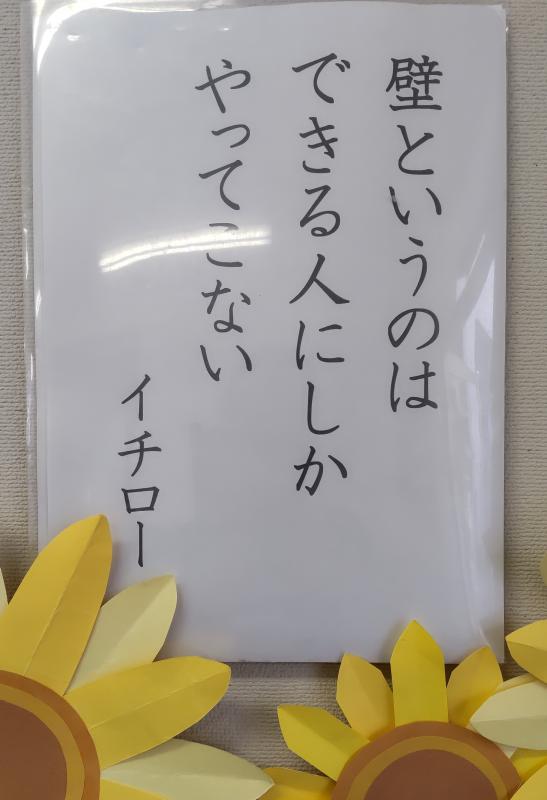 壁というのは
できる人にしか
やってこない
イチロー